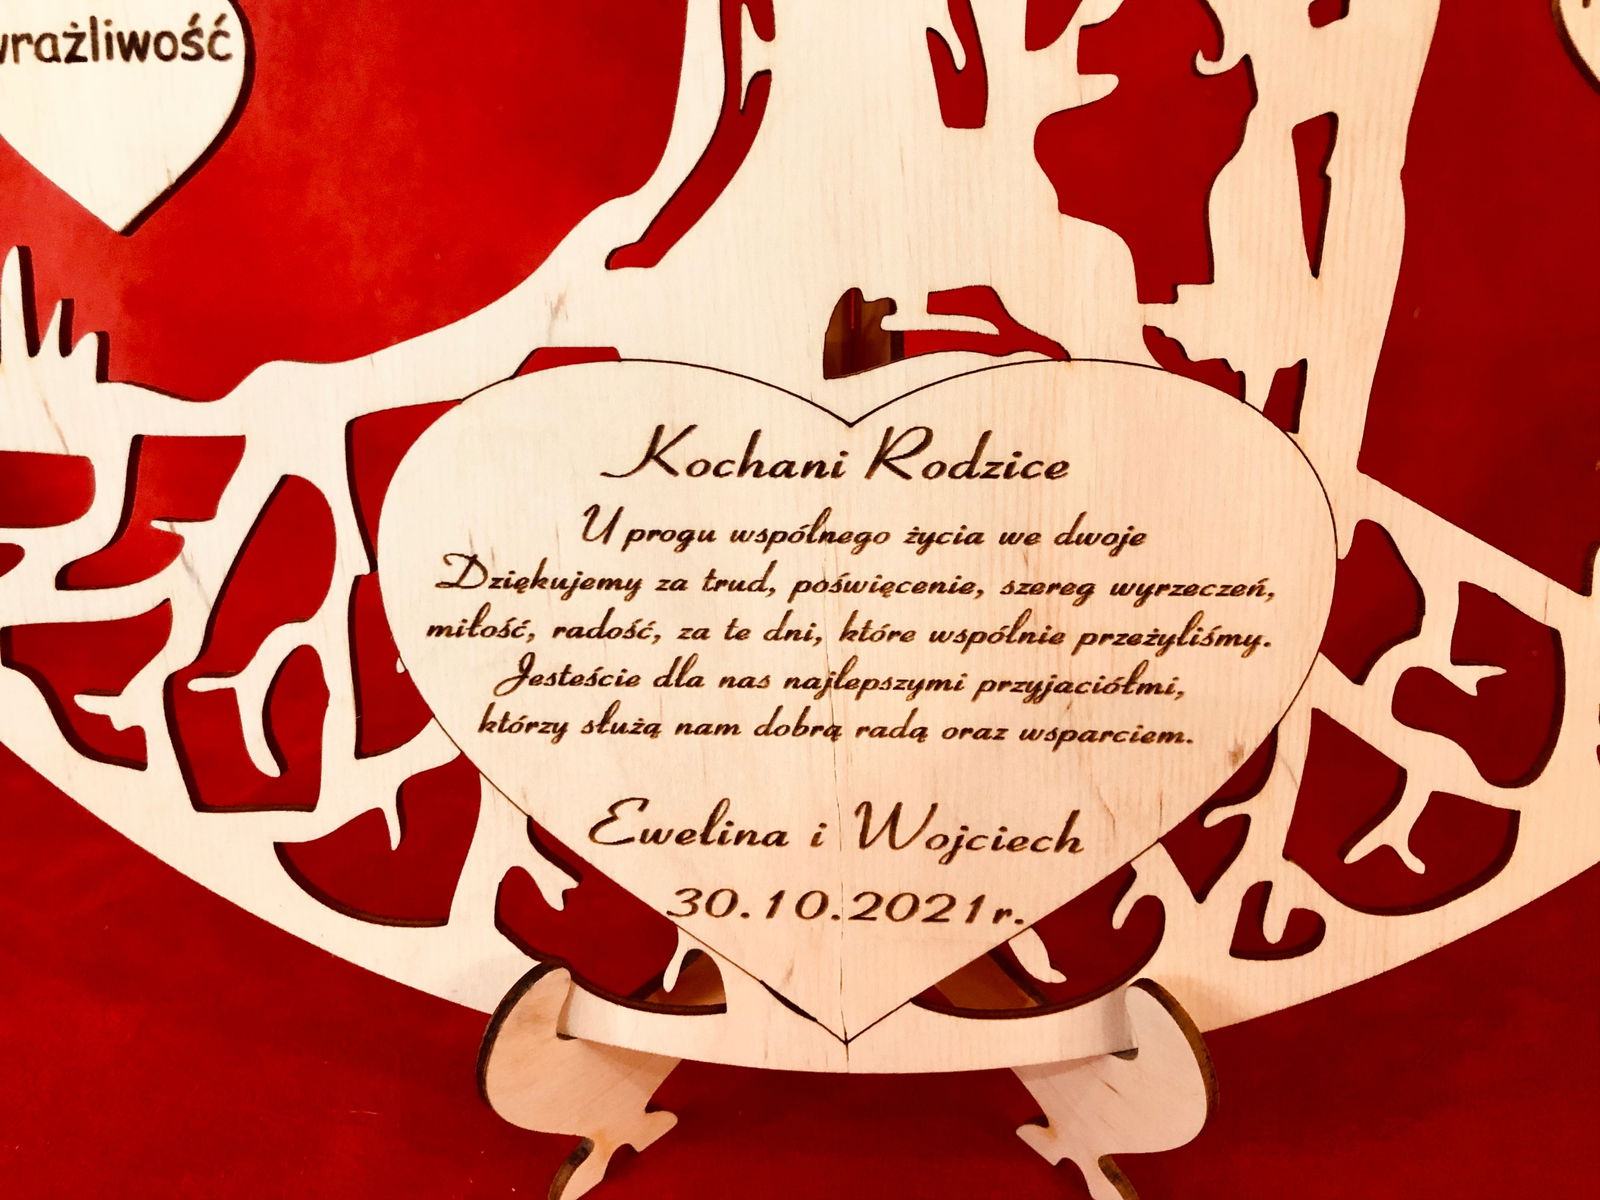 wrażliwość
Kochani Rodzice
U progu wspólnego życia we dwoje
Dziękujemy za trud, poświęcenie, szereg wyrzeczeń,
miłość, radość, za te dni, które wspólnie przeżyliśmy.
Jesteście dla nas najlepszymi przyjaciółmi,
którzy służą nam dobrą radą oraz wsparciem.
Ewelina i Wojciech
30.10.2021r.